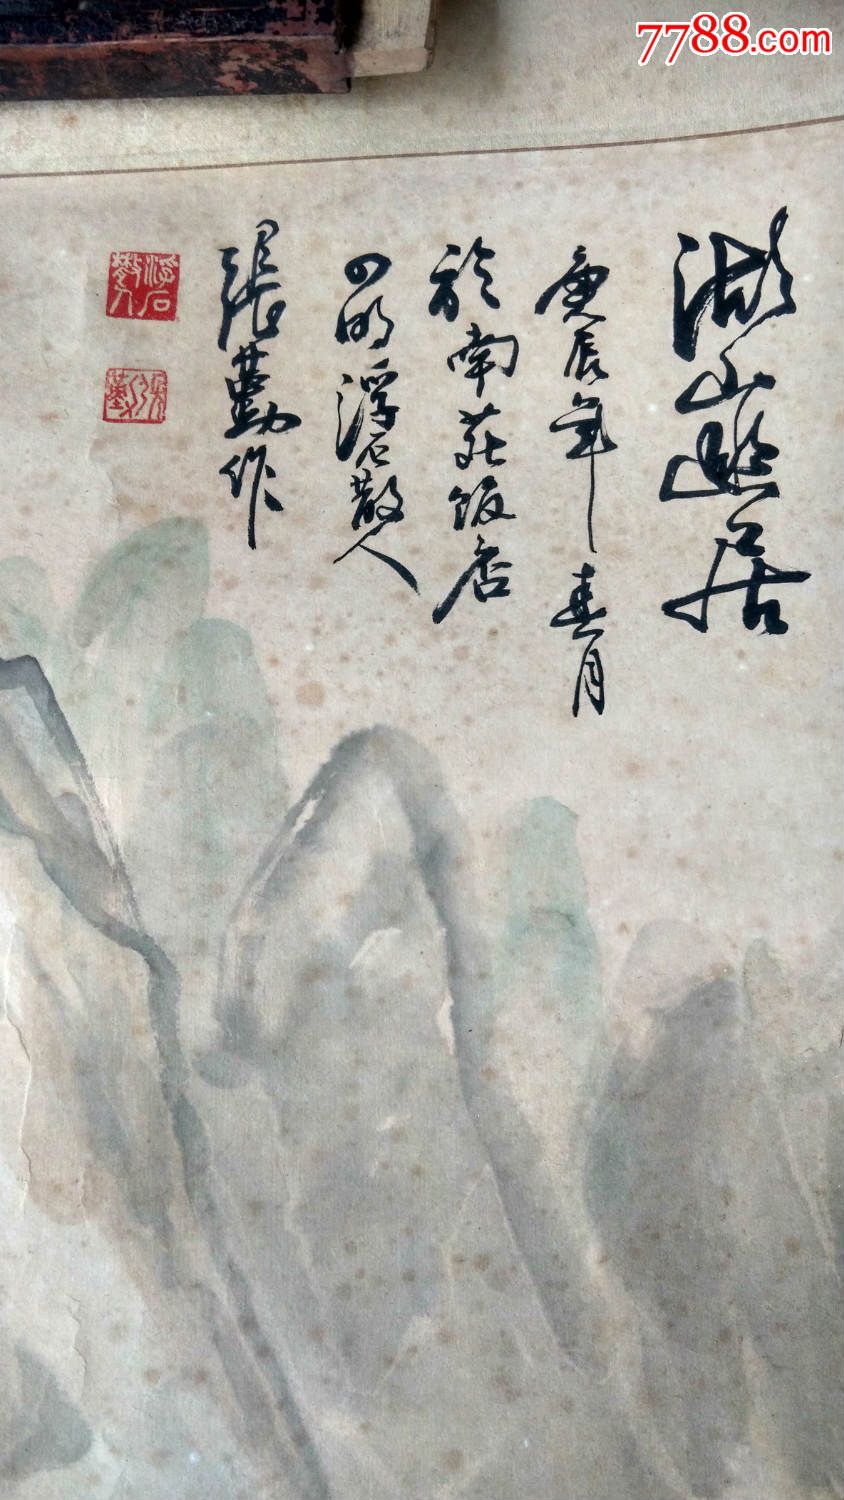 7788.com
湖山幽居
庚辰年春月
於南苑饭店
四明浮石散人
張勤作
浮石散人
張勤